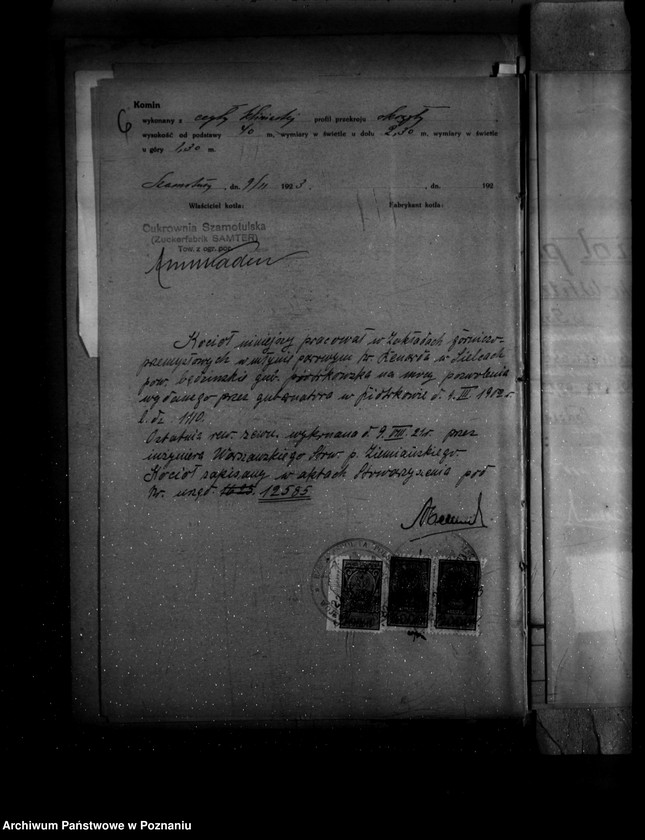 Komin
6
wykonany z cegły profil przekroju okrągły
wysokość od podstawy 40 m, wymiary w świetle u dołu 2,30 m, wymiary w świetle
u góry 1,30 m.
Szamotuły, dn. 9/11 1923. , dn. 192
Właściciel kotła: Fabrykant kotła:
Cukrownia Szamotulska
(Zuckerfabrik SAMTER)
Tow. z ogr. por.
Kocioł niniejszy pracował w Zakładach górniczo-
przemysłowych w młynie parowym hr. Renarda w Sielcach
pow. będzińskie gub. piotrkowska na mocy pozwolenia
wydanego przez gubernatora w Piotrkowie d. 1. III. 1902 r.
l. dz. 1710.
Ostatnia rew. zewn. wykonana d. 9. VIII. 21 r. przez
inżyniera Warszawskiego Stow. p. Ziemiańskiego.
Kocioł zapisany w aktach Stowarzyszenia pod
Nr. urzęd. 12565
Archiwum Państwowe w Poznaniu